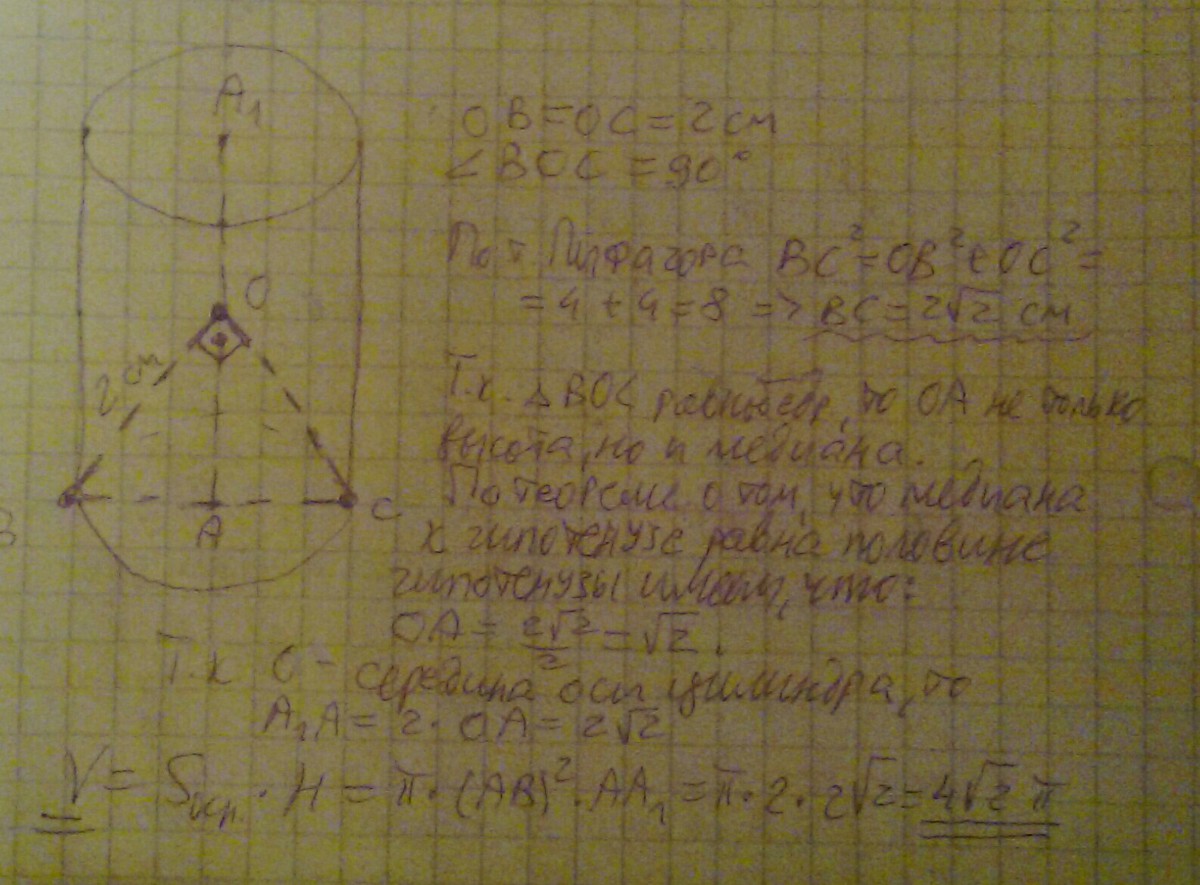 A₁
O
2 см
B
A
C
OB=OC=2см
∠BOC=90°
По т Пифагора BC²=OB²+OC²=
=4+4=8 => BC=2√2 см
Т.к. ΔBOC равнобедр, то OA не только
высота, но и медиана.
По теореме о том, что медиана
к гипотенузе равна половине
гипотенузы имеем, что:
OA = 2√2/2 = √2.
Т.к O - середина оси цилиндра, то
A₁A = 2·OA = 2√2
V = Sосн. · H = π·(AB)²·AA₁ = π·2·2√2 = 4√2 π